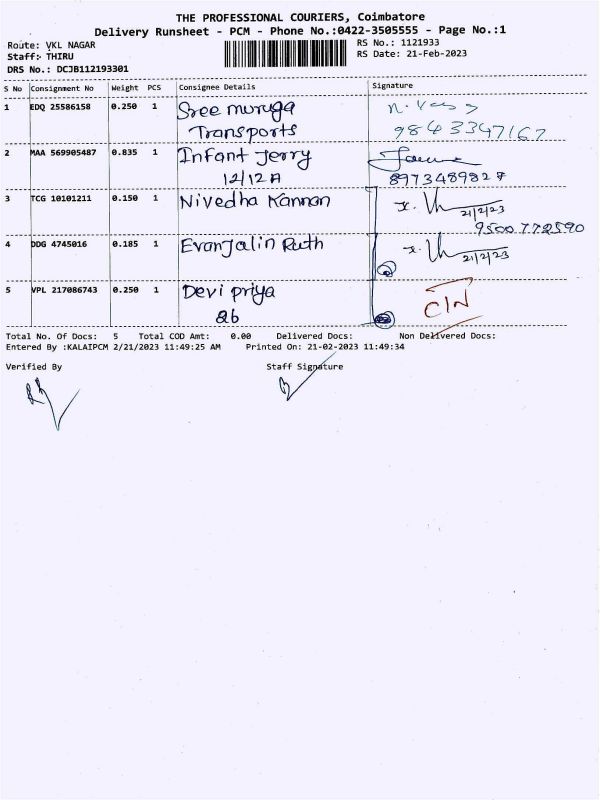 THE PROFESSIONAL COURIERS, Coimbatore
Delivery Runsheet - PCM - Phone No.:0422-3505555 - Page No.:1
Route: VKL NAGAR RS No.: 1121933
Staff:- THIRU RS Date: 21-Feb-2023
DRS No.: DCJB112193301
S No Consignment No Weight PCS Consignee Details Signature
1 EDQ 25586158 0.250 1 Sree muruga
Transports 9843347167
2 MAA 569905487 0.835 1 Infant Jerry
12/12A 8973489827
3 TCG 10101211 0.150 1 Nivedha Kannan 21/2/23
9500772590
4 DDG 4745016 0.185 1 Evanjalin Ruth 21/2/23
5 VPL 217086743 0.250 1 Devi priya CIN
26
Total No. Of Docs: 5 Total COD Amt: 0.00 Delivered Docs: Non Delivered Docs:
Entered By :KALAIPCM 2/21/2023 11:49:25 AM Printed On: 21-02-2023 11:49:34
Verified By Staff Signature